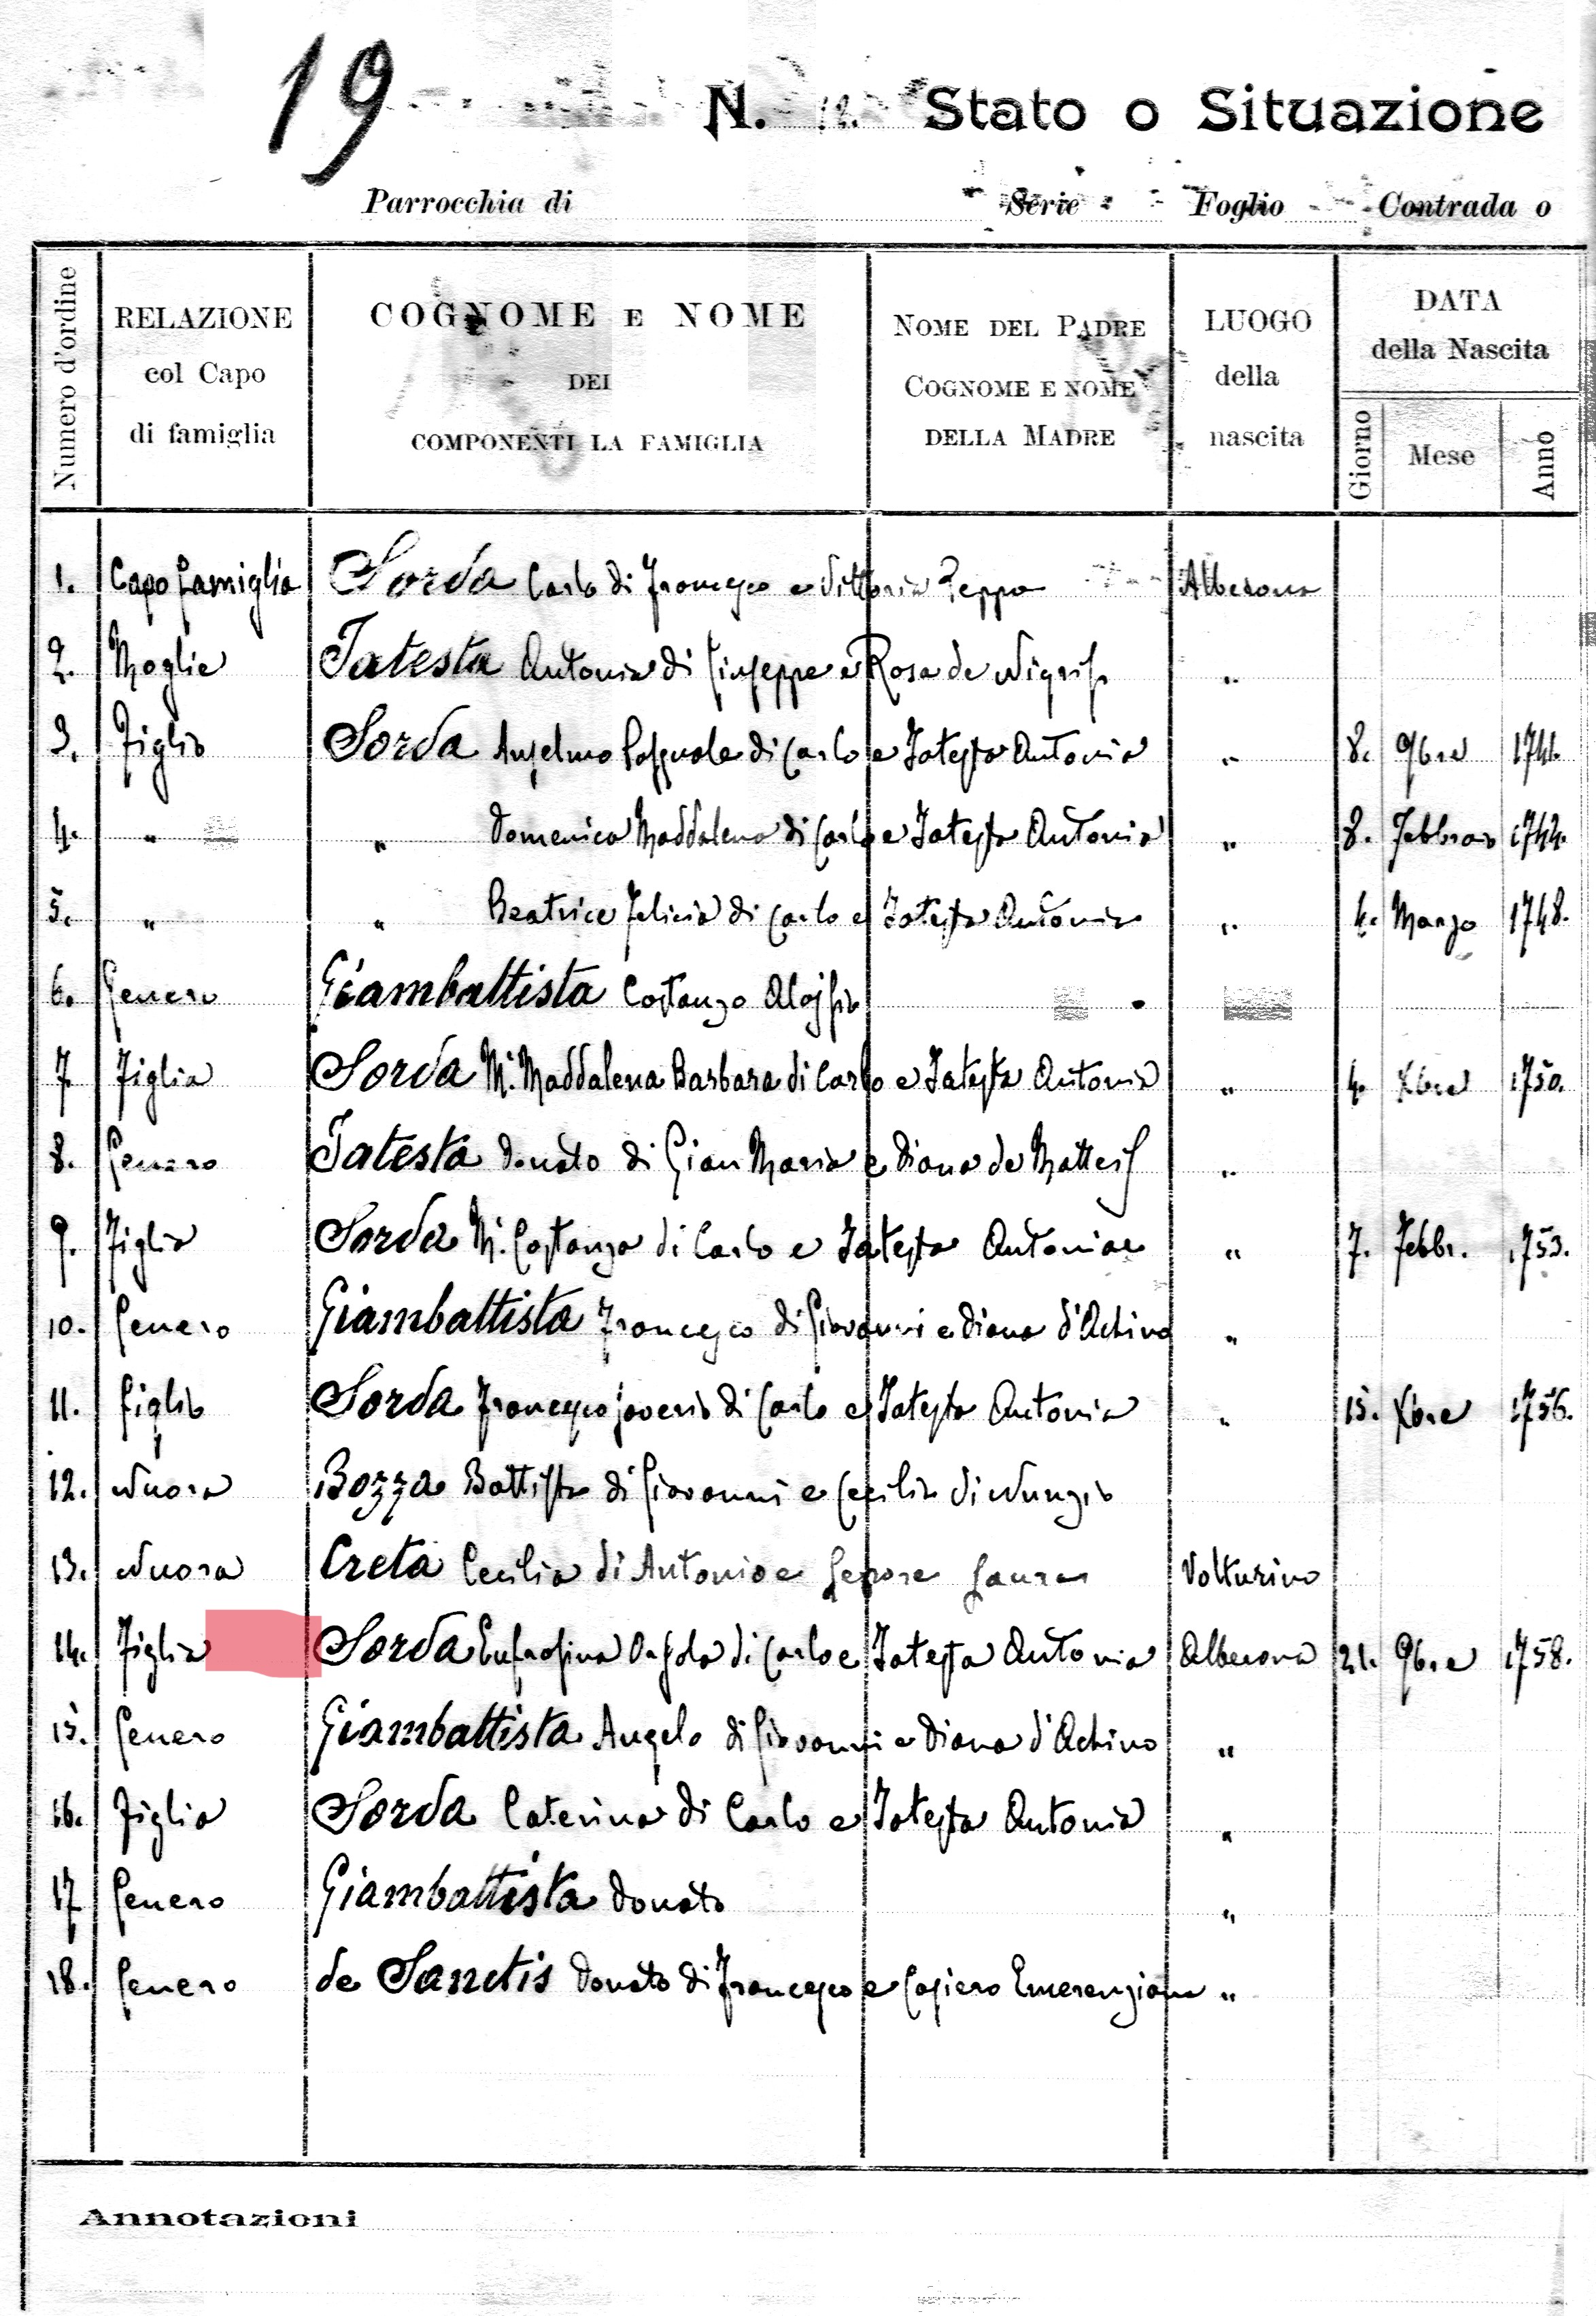 19
N. 12. Stato o Situazione
Parrocchia di Serie Foglio Contrada o
Numero d'ordine
RELAZIONE
col Capo
di famiglia
COGNOME E NOME
DEI
COMPONENTI LA FAMIGLIA
NOME DEL PADRE
COGNOME E NOME
DELLA MADRE
LUOGO
della
nascita
DATA
della Nascita
Giorno Mese Anno
1. Capo famiglia Sorda Carlo di Francesco e Vittoria Alberona
2. Moglie Iatesta Antonia di Giuseppe e Rosa de Nigris "
3. Figlio Sorda Anselmo Pasquale di Carlo e Iatesta Antonia " 8. 9bre 1741.
4. " " Domenica Maddalena di Carlo e Iatesta Antonia " 8. Febbraio 1744.
5. " " Beatrice Felicia di Carlo e Iatesta Antonia " 4. Marzo 1748.
6. Genero Giambattista Costanzo Aloisio
7 Figlia Sorda M. Maddalena Barbara di Carlo e Iatesta Antonia " 4. Xbre 1750.
8. Genero Iatesta Donato di Gian Maria e Diana de Matteis "
9. Figlia Sorda M. Costanza di Carlo e Iatesta Antonia " 7. Febbr. 1753.
10. Genero Giambattista Francesco di Giovanni e Diana d'Achino "
11. figlio Sorda Francesco Saverio di Carlo e Iatesta Antonia " 15. Xbre 1756.
12. Nuora Bozza Battista di Giovanni e Cecilia di Nunzio
13. Nuora Creta Cecilia di Antonio e Laura Volturino
14. Figlia Sorda Eufrosina Orsola di Carlo e Iatesta Antonia Alberona 21. 9bre 1758.
15. Genero Giambattista Angelo di Giovanni e Diana d'Achino "
16. Figlia Sorda Caterina di Carlo e Iatesta Antonia "
17 Genero Giambattista Donato "
18. Genero de Sanctis Donato di Francesco e Casiero Emerenziana "
Annotazioni